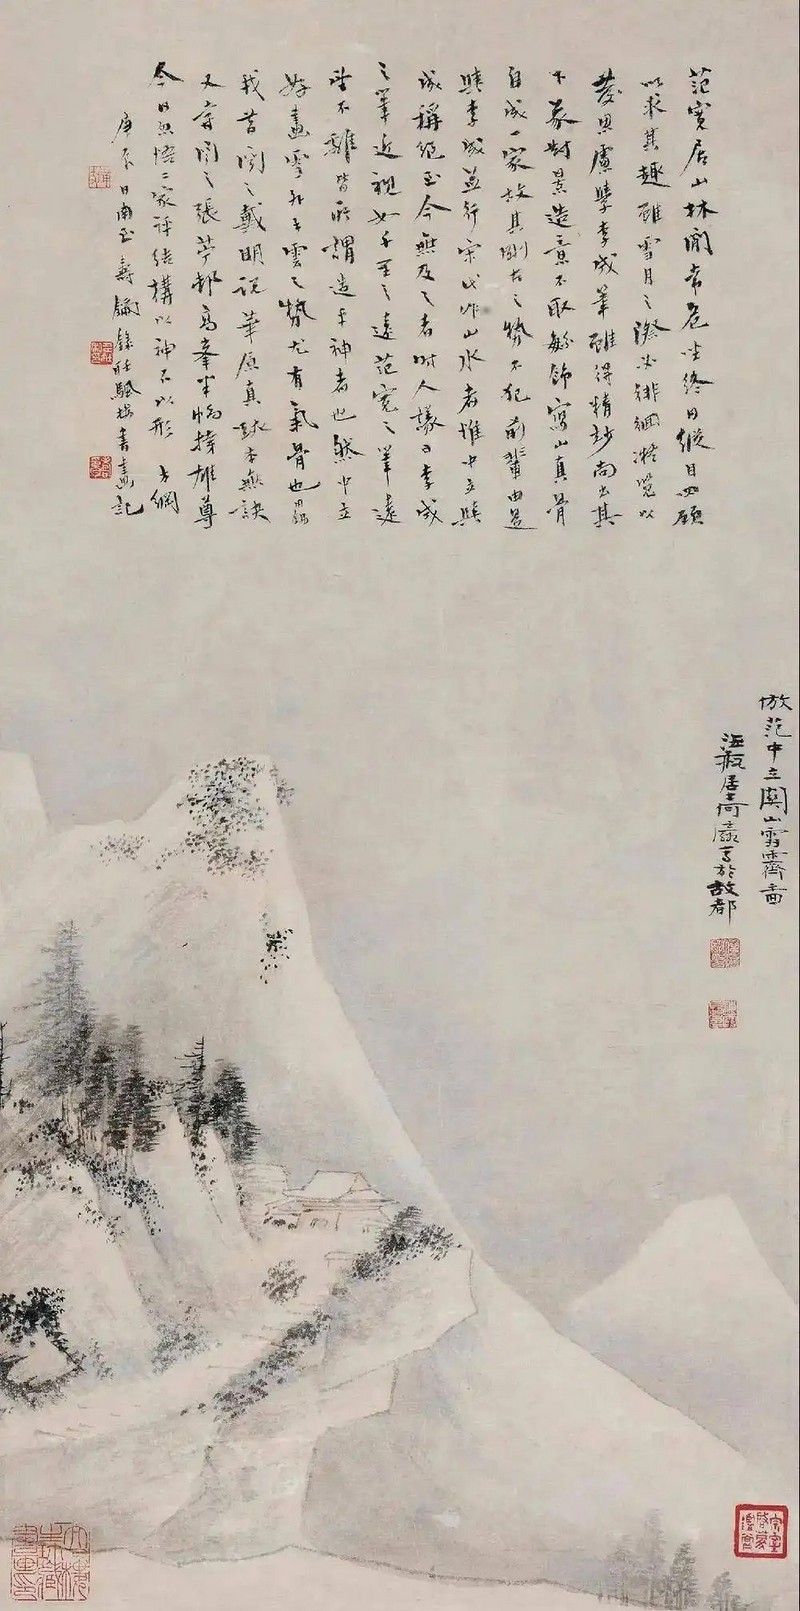 范寬居山林間常危坐終日縱目四顧
以求其趣雖雪月之際必徘徊凝覽以
發思慮學李成筆雖得精妙尚出其
下遂對景造意不取繁飾寫山真骨
自成一家故其剛古之勢不犯前輩由是
與李成並行宋代作山水者惟中立與
成稱絕至今無及之者時人議曰李成
之筆近視如千里之遠范寬之筆遠
望不離皆所謂造乎神者也然中立
好畫雪出雲之勢尤有氣骨也
我昔聞之戴明說華原真跡本無訣
又聞之張高峯半幅撐雄尊
今日忽悟二家評結構以神不以形 方綱
庚辰日南至壽錄書畫記
倣范中立關山雪霽圖
居士寫於故都